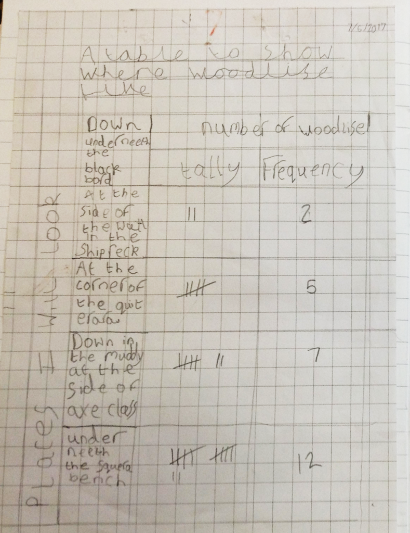 7/6/2017
A table to show
where woodlise
like
PLACES I WILL LOOK
Down
underneeth
the
black
bord
number of woodlise
tally Frequency
At the
side of
the
in the
Shipreck
||
2
At the
corner of
the quit
5
Down in
the muddy
at the
side of
are class
7
under
neeth
the squera
bench
12